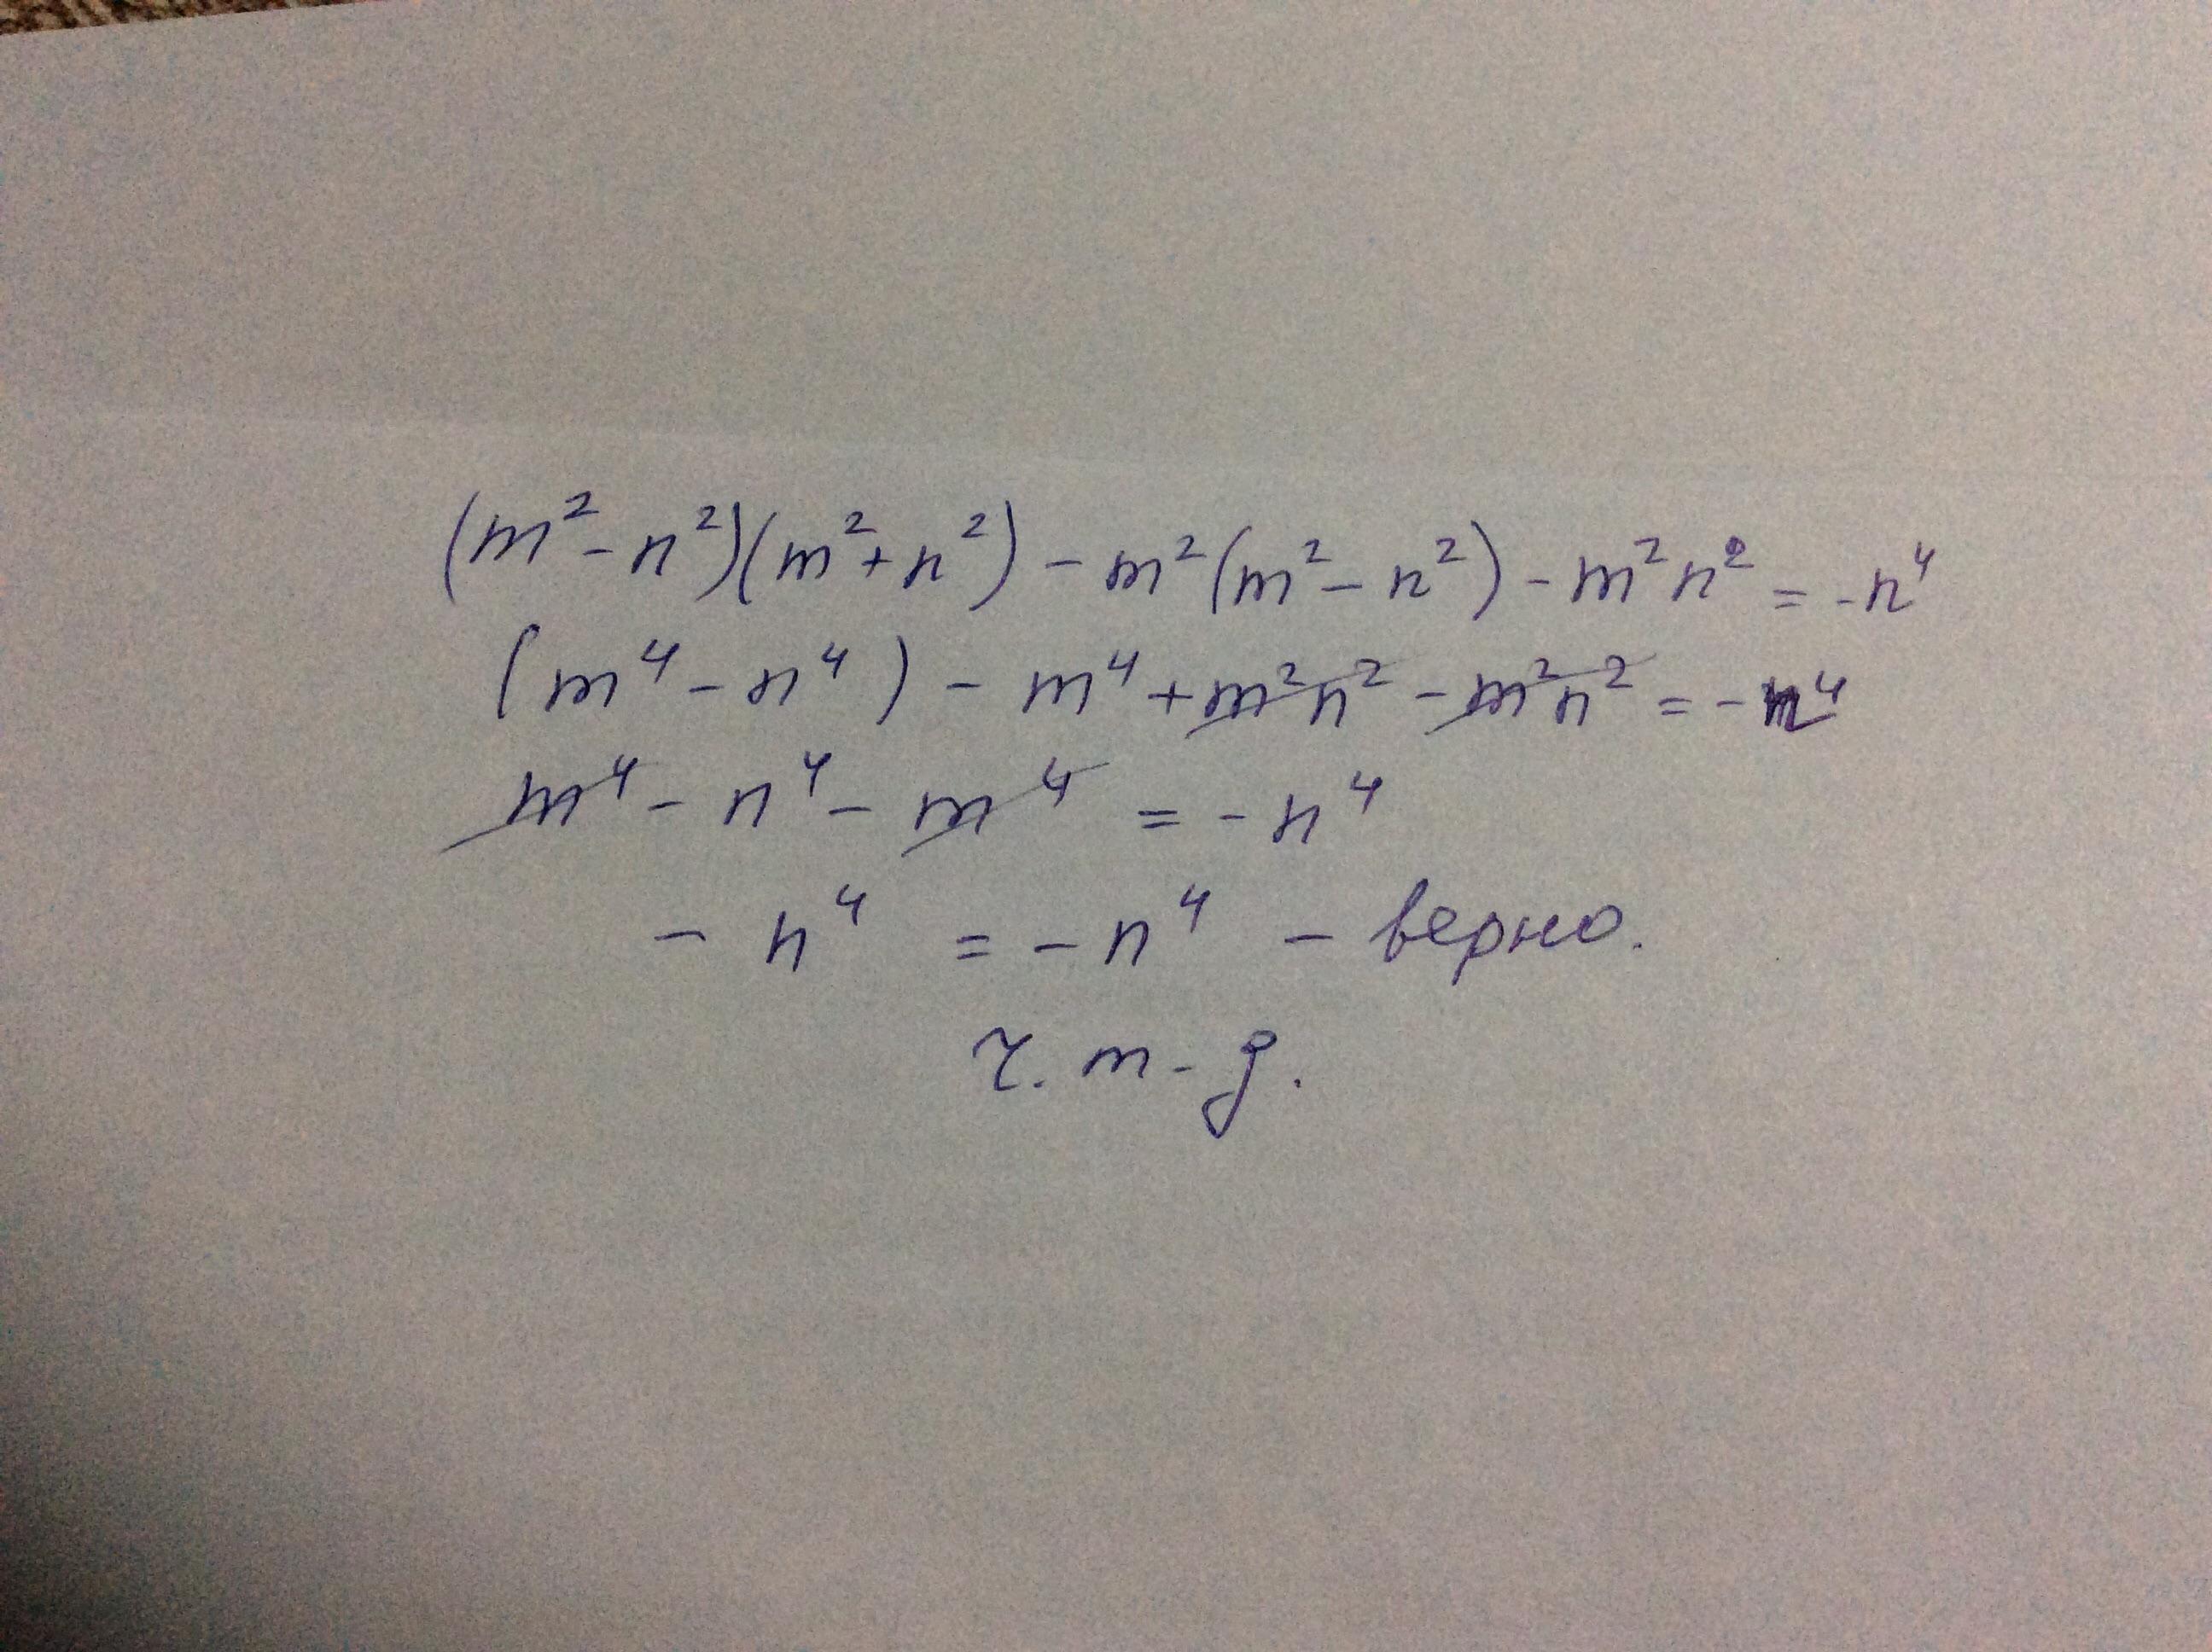 (m² - n²)(m² + n²) - m²(m² - n²) - m²n² = -n⁴
(m⁴ - n⁴) - m⁴ + m²n² - m²n² = -n⁴
m⁴ - n⁴ - m⁴ = -n⁴
- n⁴ = - n⁴ - верно.
ч. т - д.